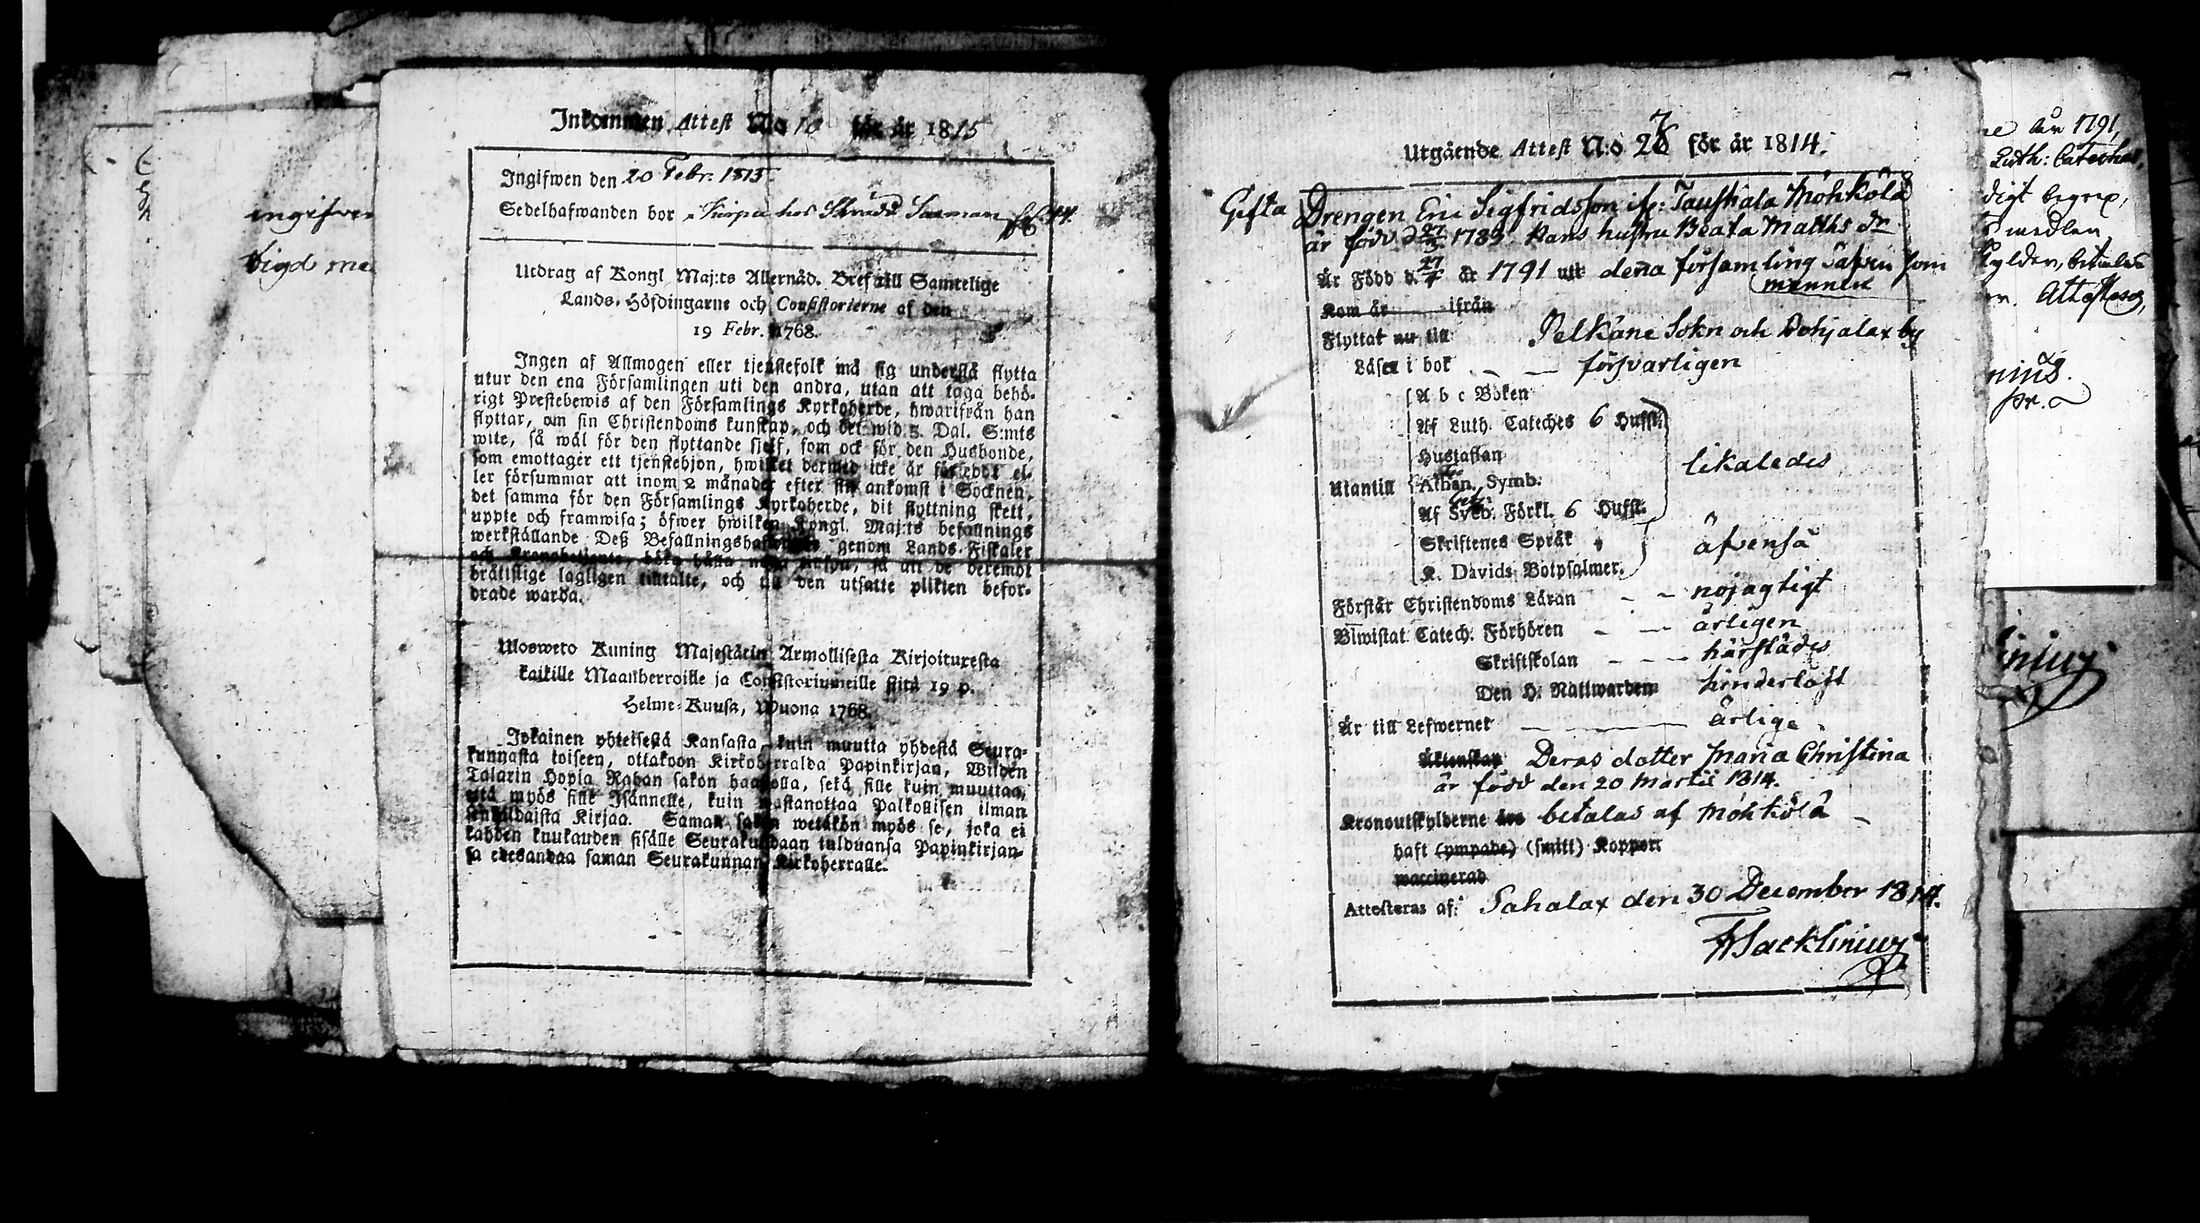 ingifwen
tigd me
Inkommen Attest No 10 för år 1815
Ingifwen den 20 Febr. 1815
Sedelhafwanden bor
Utdrag af Kongl Maj:ts Allernåd. Bref till Samtelige
Lands-Höfdingarne och Consistorierne af den
19 Febr. 1768.
Ingen af Allmogen eller tjenstefolk må sig understå flytta
utur den ena Församlingen uti den andra, utan att taga behö-
rigt Prestebewis af den Församlings Kyrkoherde, hwarifrån han
flyttar, om sin Christendoms kunskap, och det wid 5. Dal. S:mts
wite, så wäl för den flyttande sjelf, som ock för den Husbonde,
som emottager ett tjenstehjon, hwilket dermed icke är försedt el-
ler försummar att inom 2 månader efter sin ankomst i Socknen,
det samma för den Församlings Kyrkoherde, dit flyttning skett,
uppte och framwisa; öfwer hwilken Kongl. Maj:ts befallnings
werkställande Deß Befallningshafwande genom Lands-Fiskaler
och Kronobetjente, böra hålla noga så att de deremot
brätslige lagligen tilltalte, och til den utsatte plikten befor-
drade warda.
Ulosweto Kuning Majestätin Armollisesta Kirjoituxesta
kaikille Maanherroille ja Consistoriumeille siitä 19 p.
Helme-Kuusa, Wuona 1768.
Jokainen yhteisestä Kansasta, kuin muutta yhdestä Seura-
kunnasta toiseen, ottakoon Kirkoherralda Papinkirjan, Wiiden
Talarin Hopia Rahan sakon haastolla, sekä sille kuin muuttaa,
että myös sille Isännelle, kuin wastanottaa Palkollisen ilman
senkaldaista Kirjaa. Saman sakon wetäkön myös se, joka ei
kahden kuukauden sisälle Seurakundaan tulduansa Papinkirjan-
sa edesandaa saman Seurakunnan Kirkoherralle.
Utgående Attest N:o 27 för år 1814.
Gifta Drengen Eric Sigfridsson ifr: Taustiala Möhkölä
är född d 27 1789 Hans hustru Beata Matths dr
Är Född d. 27 år 1791 uti denna församling äfven som
mannen
Kom år ifrån
Flyttat nu till Pelkäne Sokn och Pohjalax by
Läser i bok försvarligen
A b c Boken
Af Luth. Cateches 6 Hufst.
Hustaflan
Utantill Athan. Symb.
likaledes
Af Sveb. Förkl. 6 Hufst.
Skriftenes Språk äfvenså
K. Davids Botpsalmer.
Förstår Christendoms Läran nöjagtigt
Biwistat Catech. Förhören årligen
Skriftskolan härstädes
Den H. Nattwarden hinderlöst
Är till Lefwernet ärlige
Äktenskap Deras dotter Maria Christina
är född den 20 Martii 1814.
Kronoutskylderne äro betalas af Möhkölä
haft (ympade) (smitt) Koppor
waccinerad
Attesteras af: Sahalax den 30 December 1814.
år 1791,
Luth: Cateches,
digt begrep,
medlen
Attesteras,
nius.
pr.